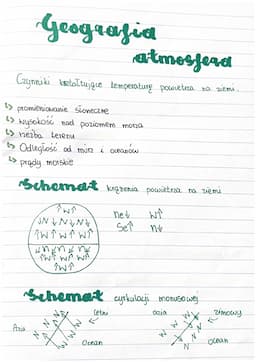 Geografia
atmosfera
Czynniki kształtujące temperaturę powietrza na ziemi.
promieniowanie słoneczne
wysokość nad poziomem morza
rzeźba terenu
Odległość od mórz i oceanów
prądy morskie
Schemat krążenia powietrza na ziemi
↑W↑
N↓N↓N↓
↑W↑W↑W↑
N↓ W↑
S↑ N↓
Schemat cyrkulacji monsunowej
Letni Azja zimowy
Azja
N N N W W W
Ocean Ocean